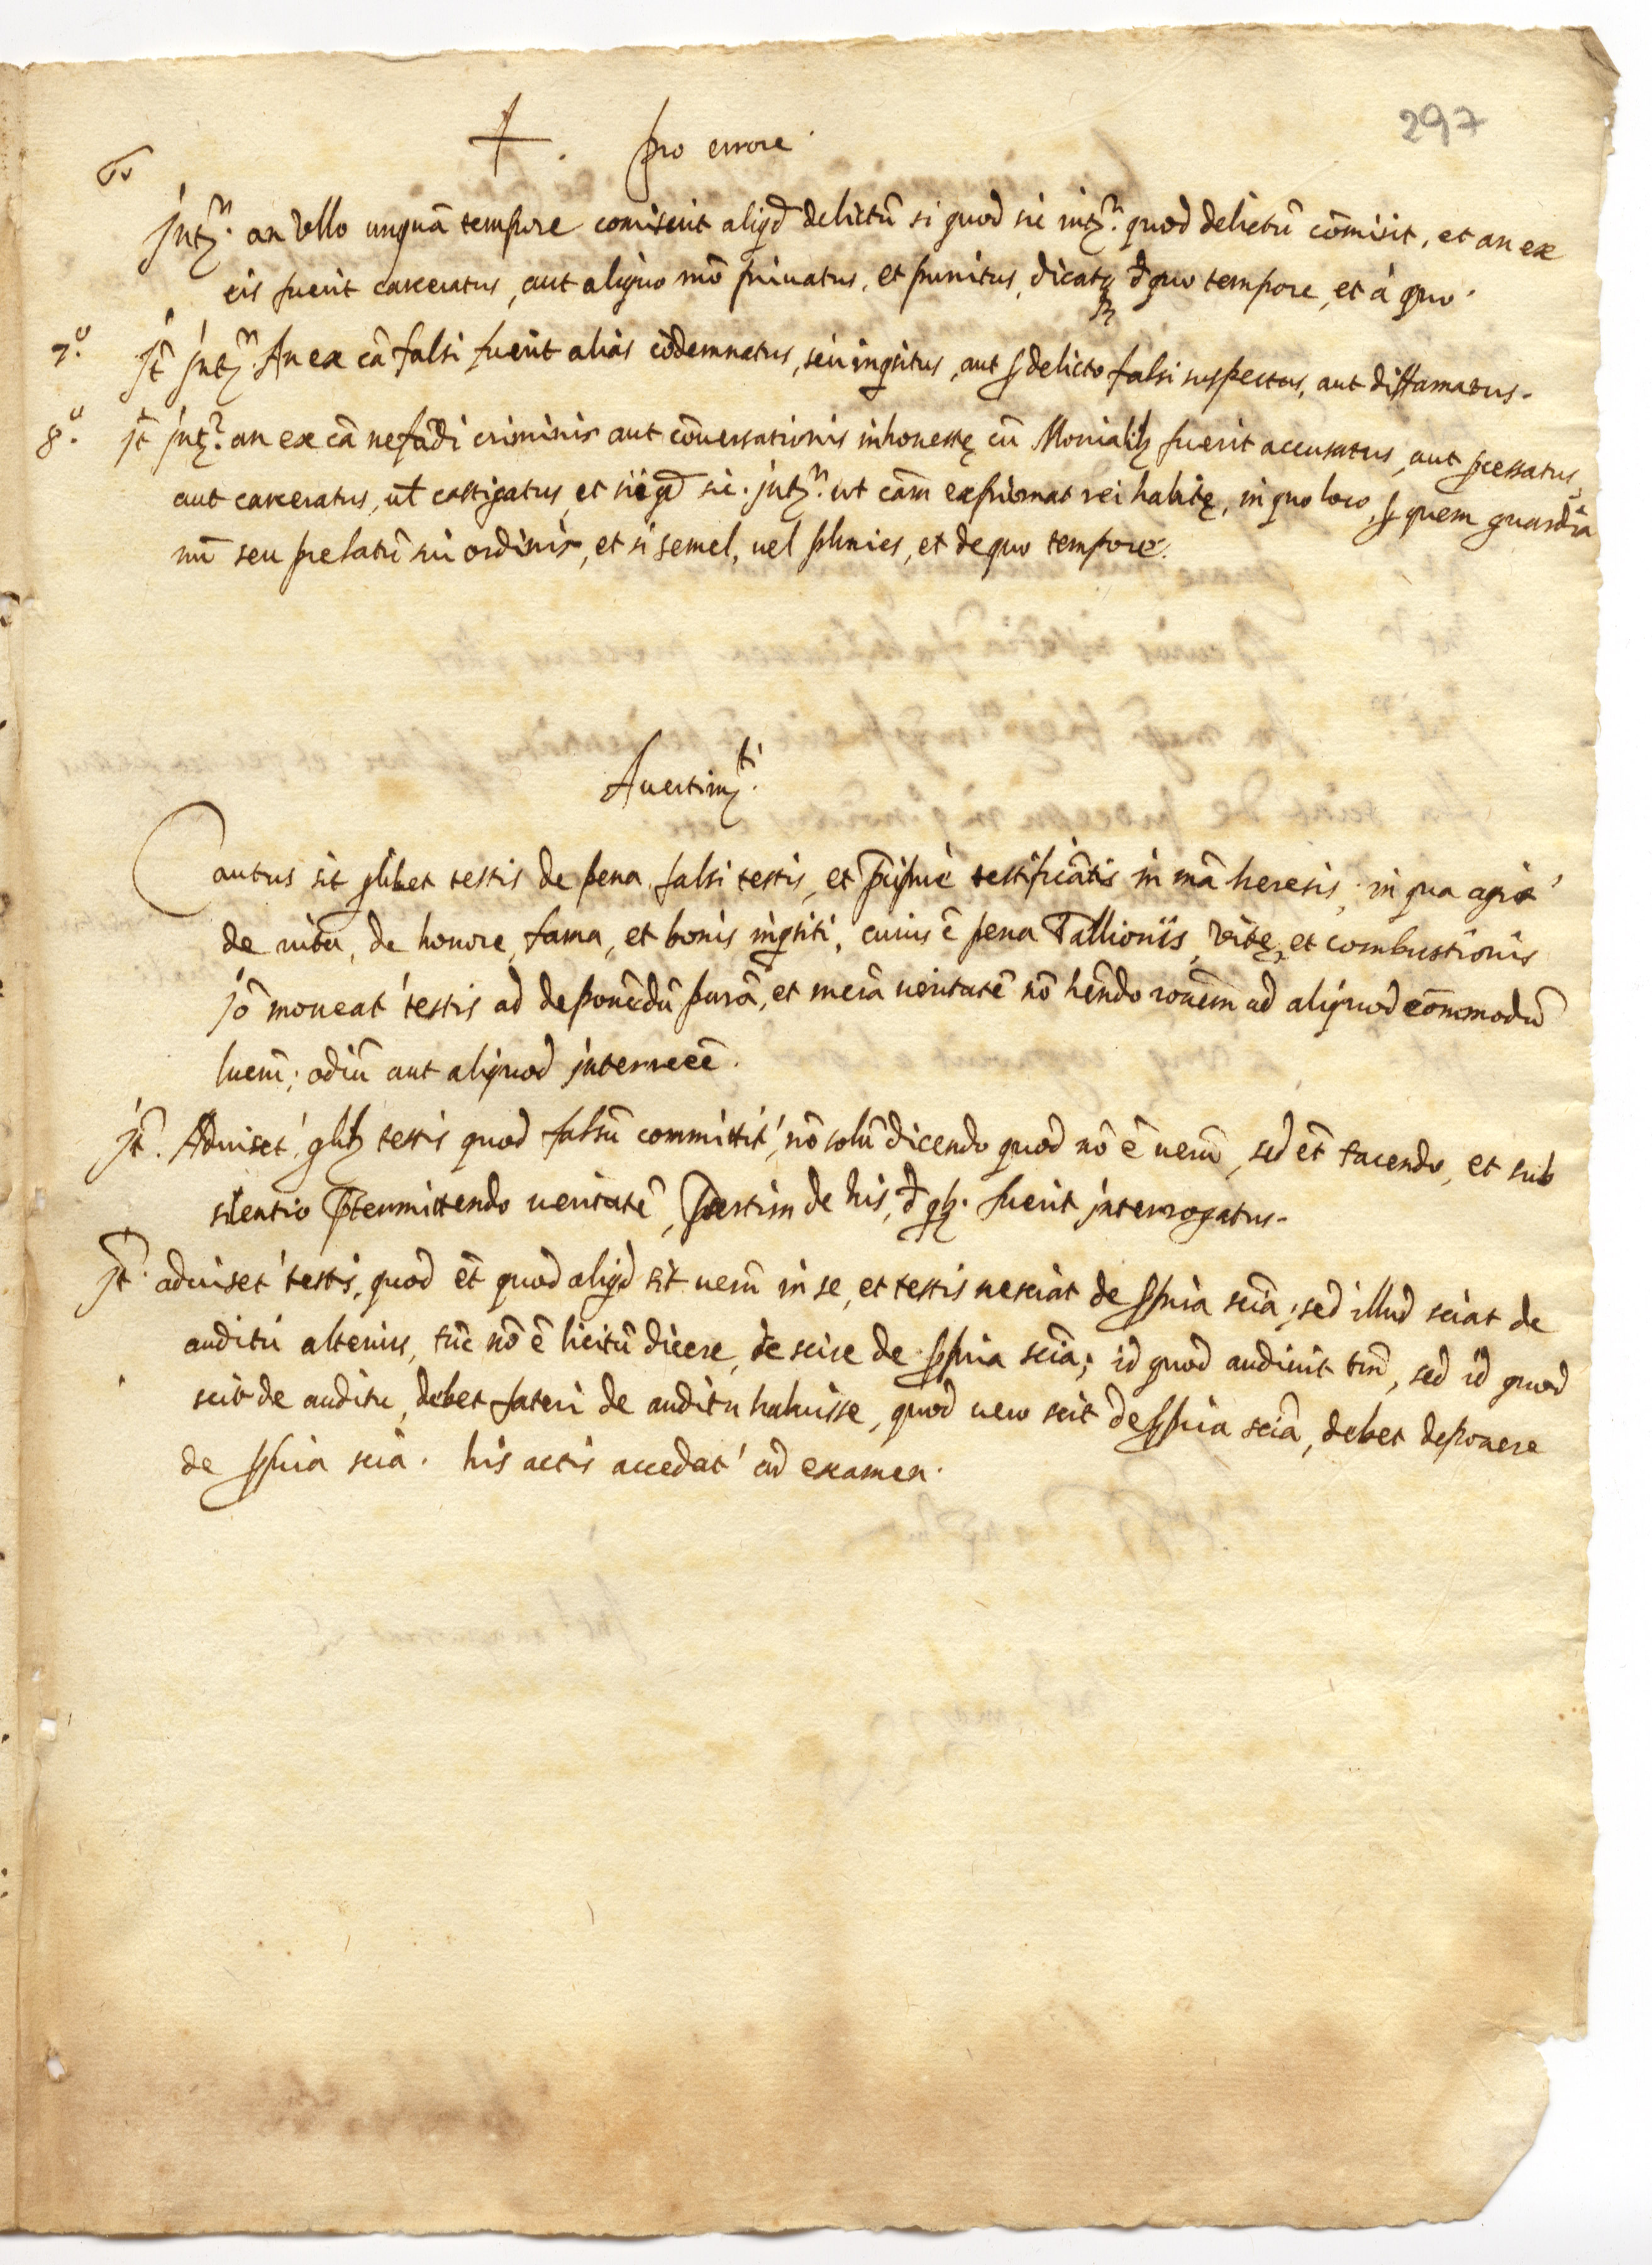 297
+ . pro errore.
6º
Intʳ. an ullo unquã tempore comiserit aliqd delictũ si quod sic intʳ. quod delictũ cõmisit, et an ex
eis fuerit carceratus, aut aliquo mõ priuatus, et punitus, dicatq; d quo tempore, et à quo.
7º. It̃ Intʳ. An ex cã falsi fuerit alias cõdemnatus, seu inqsitus, aut ꝑ delicto falsi suspectus, aut diffamatus.
8º. It̃ intʳ. an ex cã nefãdi criminis aut cõuersationis inhonestę cũ Monialib; fuerit accusatus, aut ꝓcessatus,
aut carceratus, ul̃ castigatus, et sic. intʳ. ut cãm exprimat rei habitę, in quo loco, ꝑ quem guardia
nũ seu prelatũ sui ordinis, et si semel, uel pluries, et de quo tempore.
Auertimᵗⁱ.
Cautus sit qlibet testis de pena falsi testis, et p̃cipuè testificãtis in mã heresis, in qua agit'
de uita, de honore, fama, et bonis inqsiti, cuius ẽ pena Tallioniis, vitę, et combustionis
Iõ moueat' testis ad deponẽdũ purã, et merã ueritatẽ nõ hẽndo rõnem ad aliquod cõmmodũ
lucrũ, odiũ aut aliquod interesse.
It̃. Aduiset' qlib; testis quod falsũ committit', nõ solũ dicendo quod nõ ẽ uerũ, sed et̃ tacendo, et sub
silentio p̃termittendo ueritatẽ, p̃sertim de his, d qb;. fuerit interrogatus.
It̃. aduiset' testis, quod et̃ quod aliqd sit uerũ in se, et testis nesciat de ꝓpria sciã, sed illud sciat de
auditu alterius, tũc nõ ẽ licitũ dicere, se scire de ꝓpria sciã, id quod audiuit tm̃, sed id quod
scit de auditu, debet fateri de auditu habuisse, quod uero scit de ꝓpria sciã, debet deponere
de ꝓpria scia. his actis accedat' ad examen.